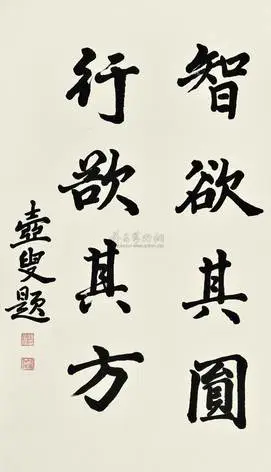 智欲其圓
行欲其方
壺叟題